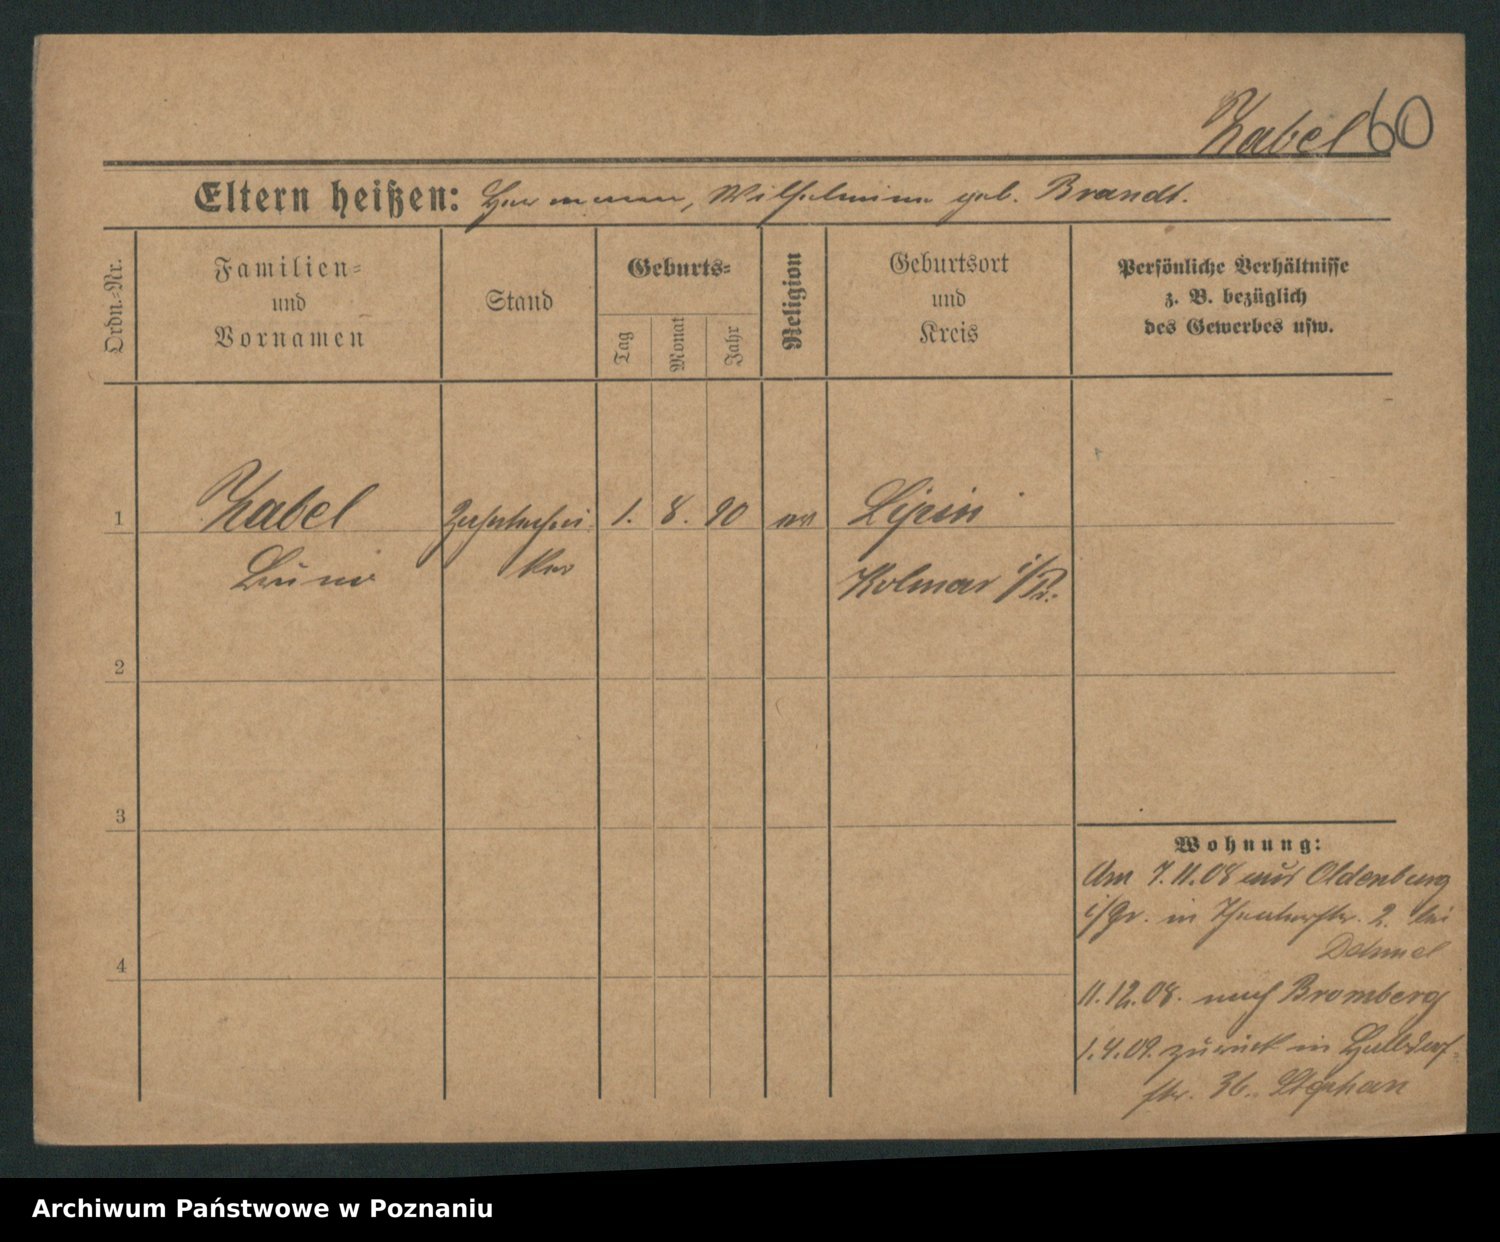 Zabel 60
Eltern heißen: Hermann, Wilhelmine geb. Brandt.
Ordn.-Nr.
Familien-
und
Vornamen
Stand
Geburts-
Tag
Monat
Jahr
Religion
Geburtsort
und
Kreis
Persönliche Verhältnisse
z. B. bezüglich
des Gewerbes usw.
1 Zabel 1. 8. 90 ev Lipin
ker Kolmar i/P.
2
3
4
Wohnung:
Am 7.11.08 aus Oldenburg
i/Gr. in 2. bei
Dehmel
11.12.08. nach Bromberg
1.4.09. zurück in Halbdorf-
str. 36. Stephan
Archiwum Państwowe w Poznaniu